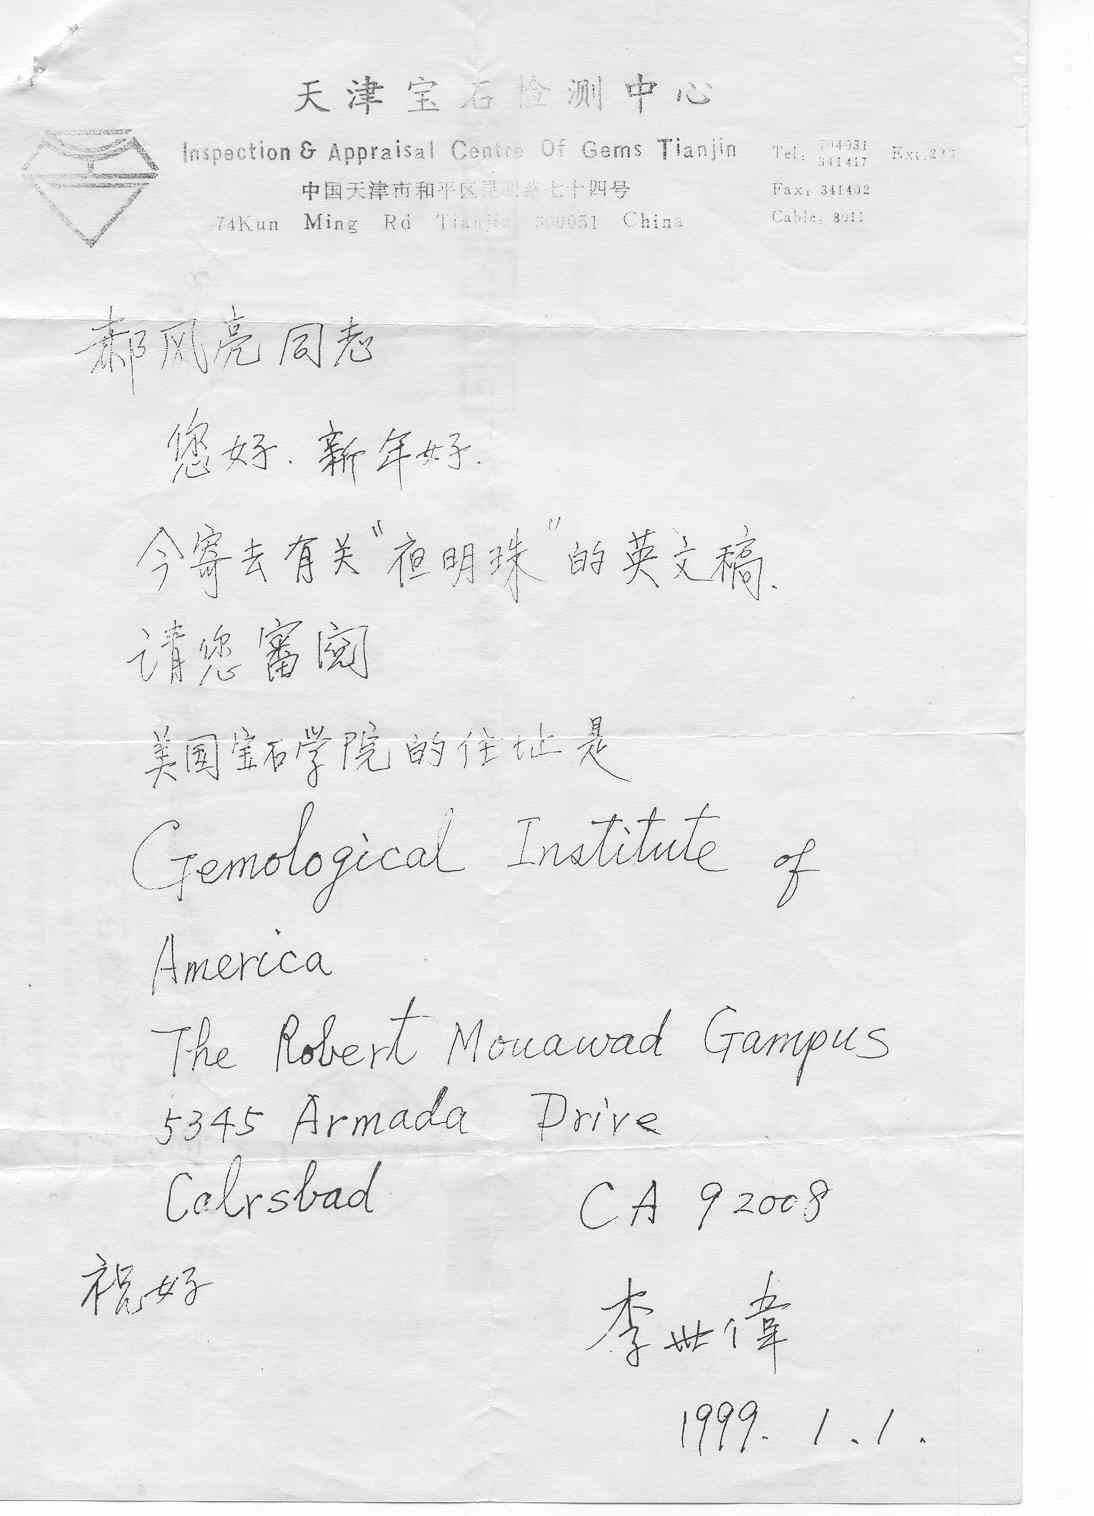 天津宝石检测中心
Inspection & Appraisal Centre Of Gems Tianjin
Tel: 704031
341417
Ext.
中国天津市和平区昆明路七十四号
Fax: 341402
74Kun Ming Rd Tianjin 300051 China
Cable: 8011
郝风亮同志
您好.新年好.
今寄去有关"夜明珠"的英文稿.
请您審阅
美国宝石学院的住址是
Gemological Institute of
America
The Robert Mouawad Gampus
5345 Armada Drive
Calrsbad CA 92008
祝好
李世偉
1999.1.1.